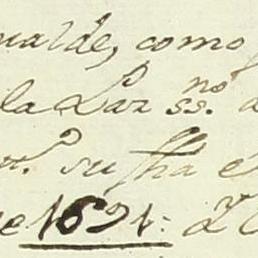 ualde, como
la Lar ss.no d
r. su fha e
e 1691: D